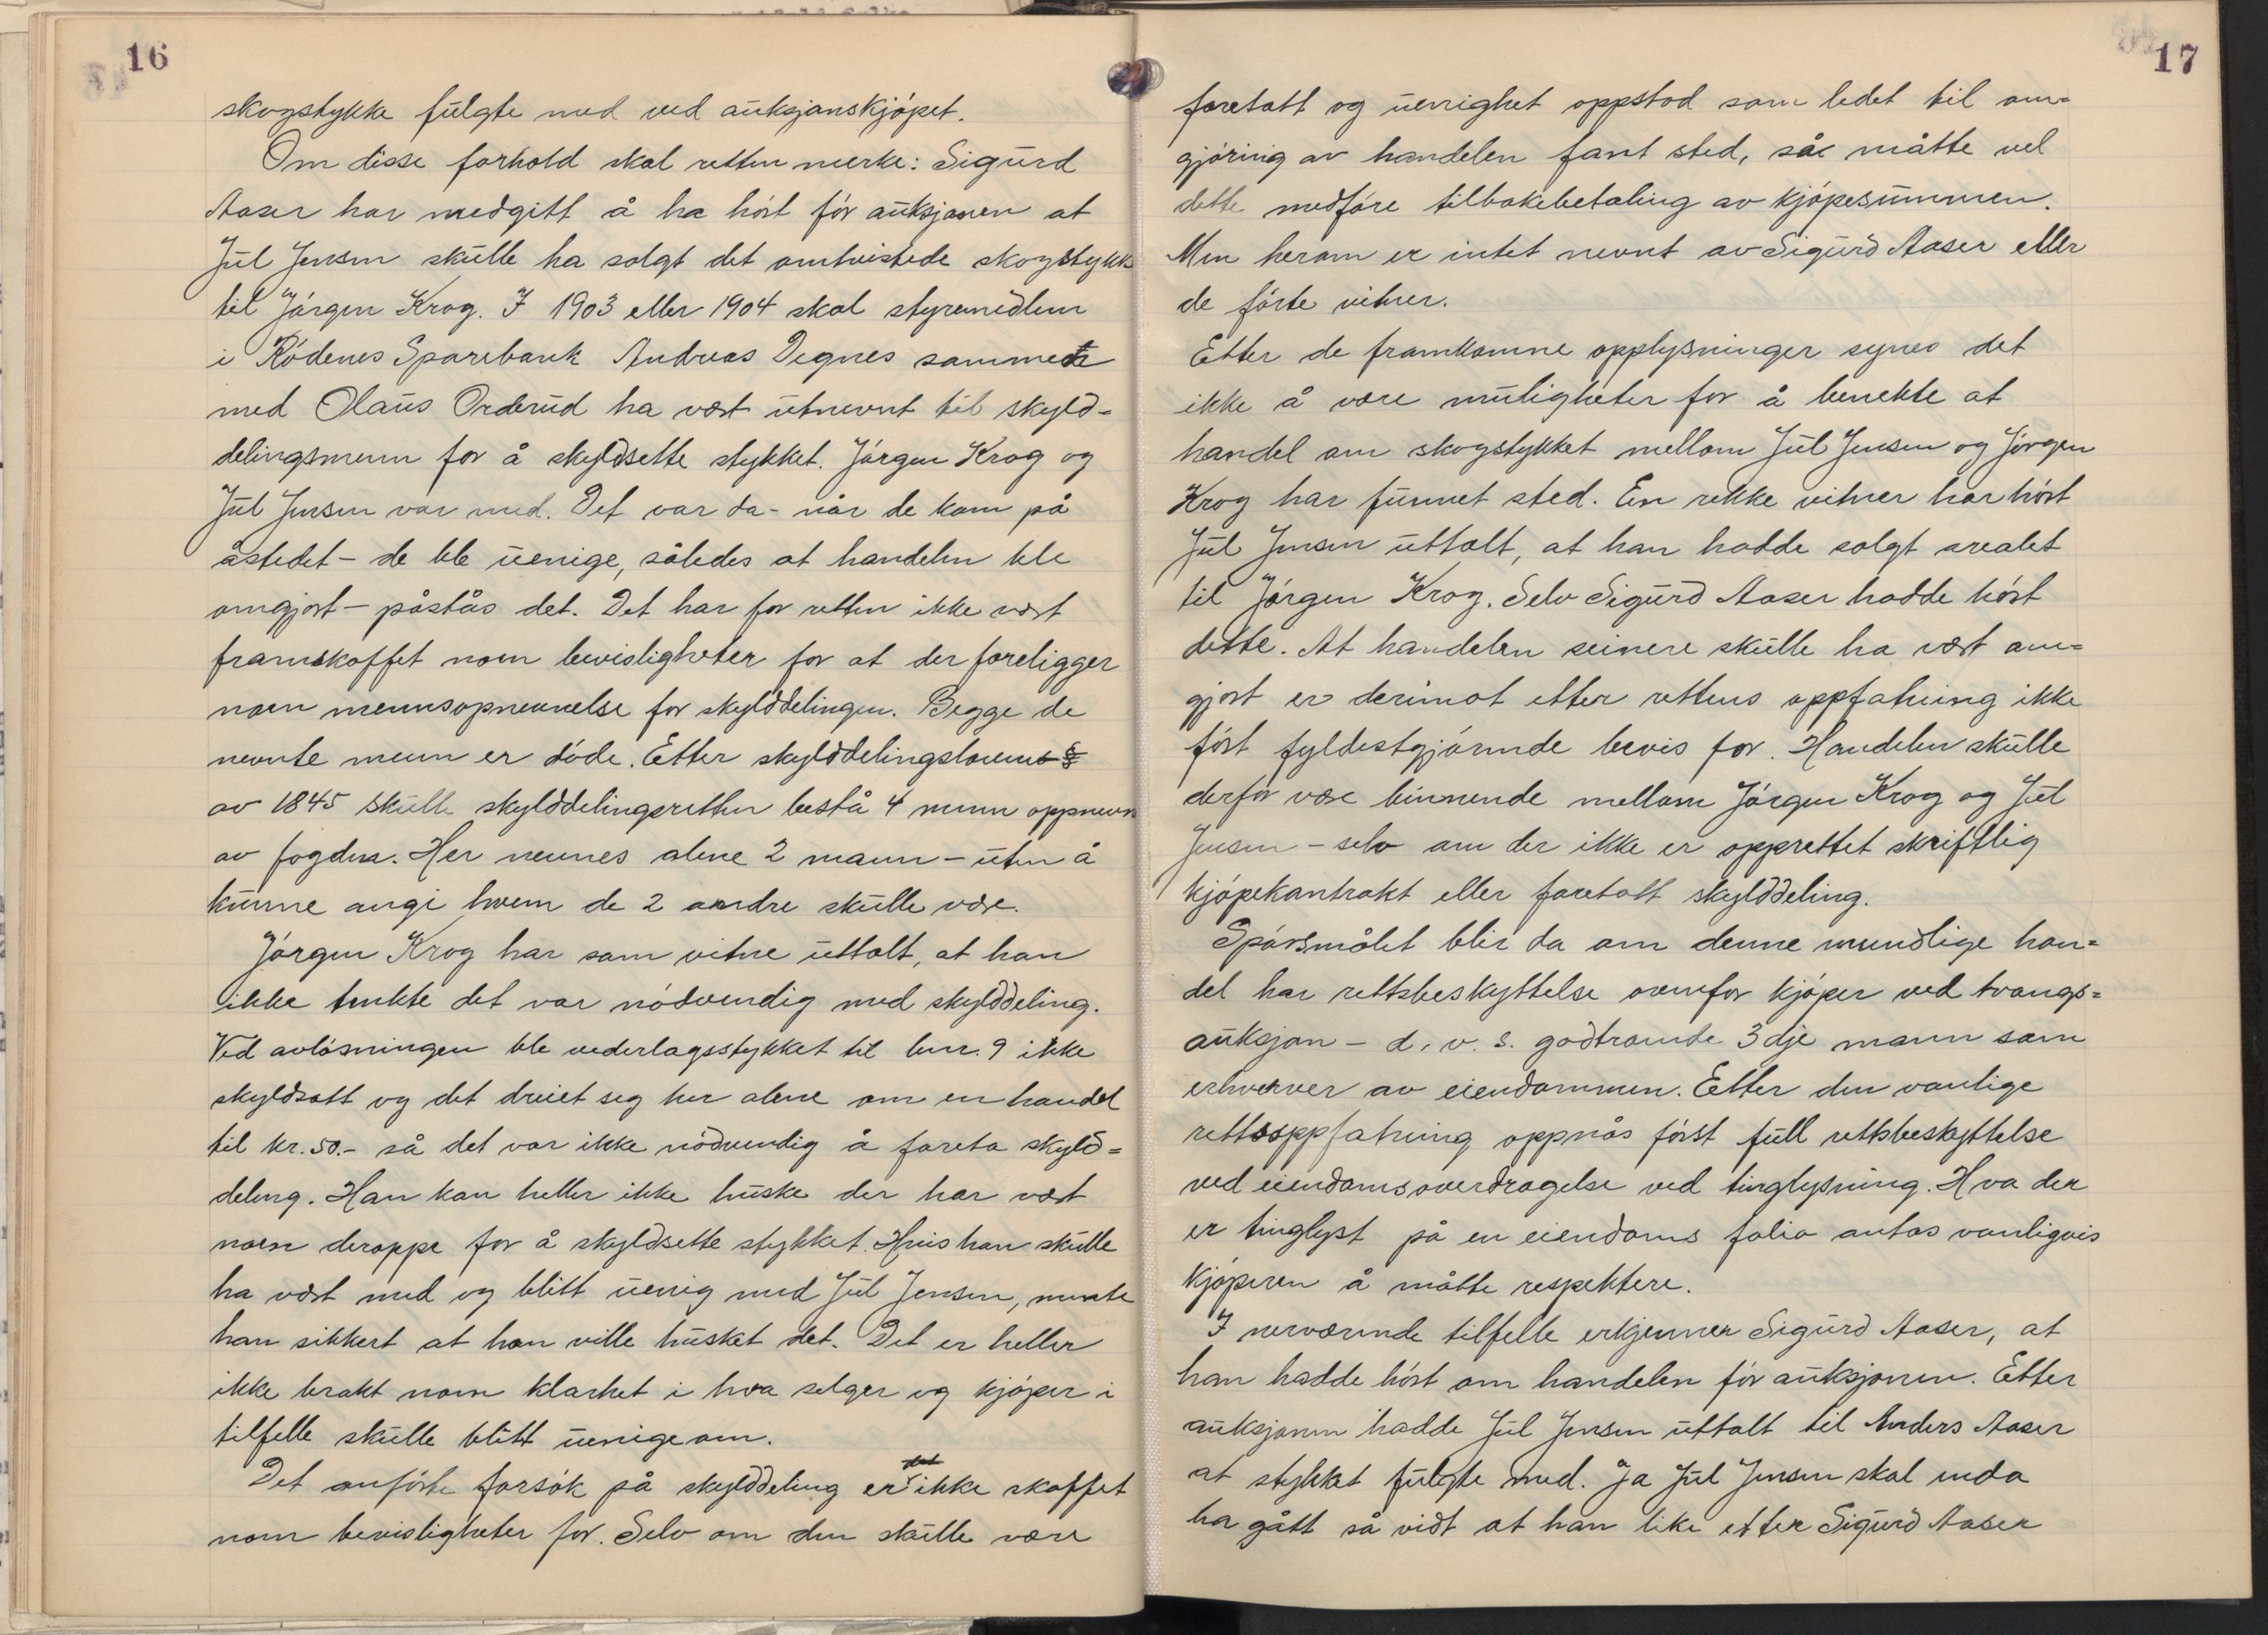 16
skogstykke fulgte med ved auksjonskjøpet.
Om disse forhold skal retten merke: Sigurd
Aaser har medgitt å ha hørt før auksjonen at
Jul Jensen skulle ha solgt det omtvistede skogstykk
til Jørgen Krog. I 1903 eller 1904 skal styremedlem
i Rødenes Sparebank Andreas Degnes sammen
med Olaus Orderud ha vært utnevnt til skyld=
delingsmenn for å skyldsette stykket. Jørgen Krog og
Jul Jensen var med. Det var da - når de kom på
åstedet - de ble uenige, således at handelen ble
omgjort - påstås det. Det har for retten ikke vært
framskaffet noen bevisligheter for at der foreligger
noen mennsopnevnelse for skylddelingen. Begge de
nevnte menn er døde. Etter skylddelingsloven §
av 1845 skulle skylddelingsretten bestå 4 menn oppnevn
av fogden. Her nevnes alene 2 mann - uten å
kunne angi hvem de 2 andre skulle være.
Jørgen Krog har som vitne uttalt, at han
ikke tenkte det var nødvendig med skylddeling.
Ved avløsningen ble vederlagsstykket til bnr. 9 ikke
skyldsatt og det dreiet seg her alene om en handel
til kr. 50.- så det var ikke nødvendig å foreta skyld=
deling. Han kan heller ikke huske der har vært
noen deroppe for å skyldsette stykket. Hvis han skulle
ha vært med og blitt uenig med Jul Jensen, mente
han sikkert at han ville husket det. Det er heller
ikke brakt noen klarhet i hva selger og kjøper i
tilfelle skulle blitt uenige om.
Det anførte forsøk på skylddeling er det ikke skaffet
noen bevisligheter for. Selv om den skulle være
17
foretatt og uenighet oppstod som ledet til om=
gjøring av handelen fant sted, så måtte vel
dette medføre tilbakebetaling av kjøpesummen.
Men herom er intet nevnt av Sigurd Aaser eller
de førte vitner.
Etter de framkomne opplysninger synes det
ikke å være muligheter for å benekte at
handel om skogstykket mellom Jul Jensen og Jørgen
Krog har funnet sted. En rekke vitner har hørt
Jul Jensen uttalt, at han hadde solgt arealet
til Jørgen Krog. Selv Sigurd Aaser hadde hørt
dette. At handelen seinere skulle ha vært om=
gjort er derimot etter rettens oppfatning ikke
ført fyldestgjørende bevis for. Handelen skulle
derfor være bindende mellom Jørgen Krog og Jul
Jensen - selv om der ikke er opprettet skriftlig
kjøpekontrakt eller foretatt skylddeling.
Spørsmålet blir da om denne mundlige han=
del har rettsbeskyttelse ovenfor kjøper ved tvangs=
auksjon - d. v. s. godtroende 3dje mann som
erhverver av eiendommen. Etter den vanlige
rettsoppfatning oppnås først full rettsbeskyttelse
ved eiendomsoverdragelse ved tinglysning. Hva der
er tinglyst på en eiendoms folio antas vanligvis
kjøperen å måtte respektere.
I nerværende tilfelle erkjenner Sigurd Aaser, at
han hadde hørt om handelen før auksjonen. Etter
auksjonen hadde Jul Jensen uttalt til Anders Aaser
at stykket fulgte med. Ja Jul Jensen skal enda
ha gått så vidt at han like etter Sigurd Aaser